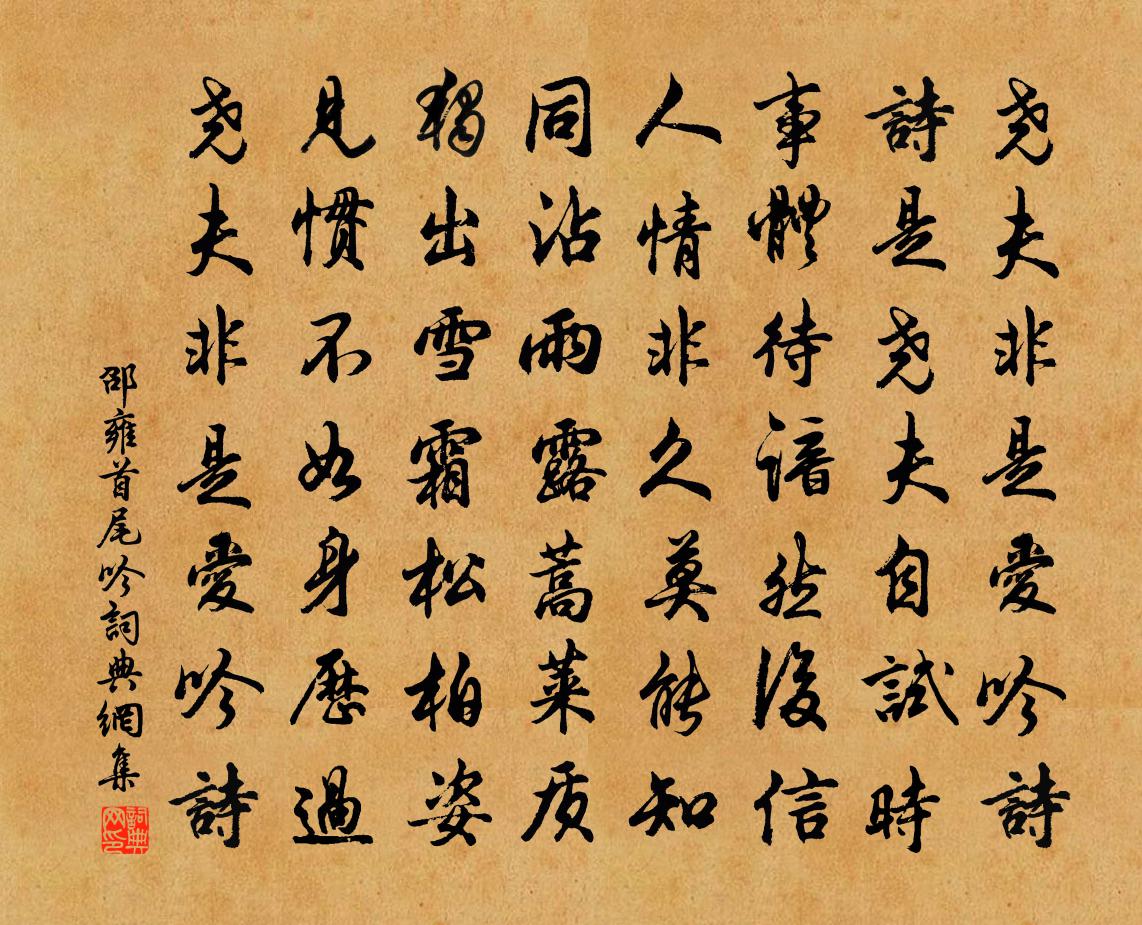 尧夫非是愛吟詩
詩是尧夫自試時
事體待諳然後信
人情非久莫能知
同沾雨露蒿莱质
獨出雪霜松柏姿
見慣不如身歷過
尧夫非是愛吟詩
邵雍首尾吟詞典網集
詞典网印